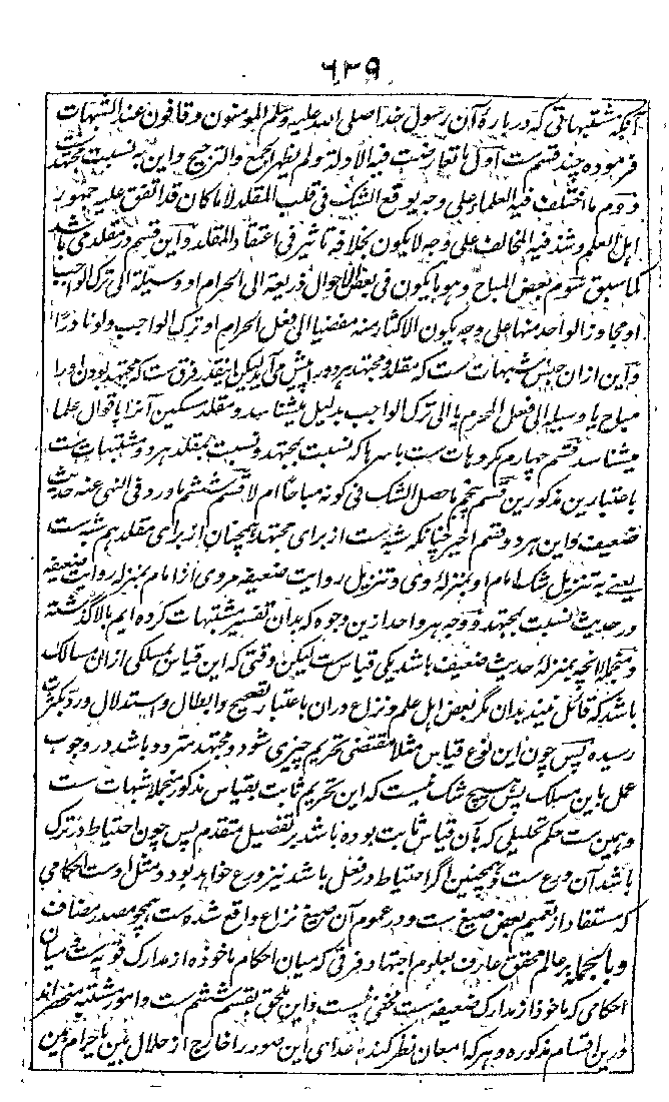 ٦٣٩
آنکه مشتبهاتی که درباره آن رسول خدا صلی الله علیه وسلم المؤمنون وقافون عند الشبهات
فرموده چند قسم ست اول ما تعارضت فیه الادلة ولم یظهر الجمع والترجیح واین به نسبت مجتهد ست
دوم ما اختلف فیه العلماء علی وجه یوقع الشک فی قلب المقلد لا ما کان قد اتفق علیه جمهور
اهل العلم وشذ فیه المخالف علی وجه لا یکون بخلافه تاثیر فی اعتقاد المقلد واین قسم در مقلد می باشد
کما سبق سوم بعض المباح وهو ما یکون فی بعض الاحوال ذریعة الی الحرام او وسیلة الی ترک الواجب
او مجاوز الواحد منها علی وجه یکون الاکثار منه مفضیا الی فعل الحرام او ترک الواجب ولو نادرا
واین ازان جنس شبهات ست که مقلد ومجتهد هر دو را پیش می آید لیکن اینقدر فرق ست که مجتهد بودن او را
مباح یا وسیله الی فعل المحرم یا الی ترک الواجب بدلیل میشناسد ومقلد مسکین آنرا باقوال علما
میشناسد قسم چهارم مکروهات ست باسرها که نسبت بمجتهد ونسبت بمقلد هر دو مشتبهات ست
باعتبارین مذکورین قسم پنجم ما حصل الشک فی کونه مباحا ام لا قسم ششم ما ورد فی النهی عنه حدیث
ضعیف واین هر دو قسم اخیر چنانکه شبه ست از برای مجتهد همچنان از برای مقلد هم شبه ست
یعنی به تنزیل شک امام او بمنزلهٔ وی وتنزیل روایت ضعیفه مروی از امام بمنزله روایت ضعیفه
در حدیث نسبت بمجتهد ووجه هر واحد ازین وجوه که بدان تفسیر مشتبهات کرده ایم بالا گذشته
ومنجمله آنچه بمنزلهٔ حدیث ضعیف باشد یکی قیاس ست لیکن وقتی که این قیاس مسلکی ازان مسالک
باشد که قائل نیند بدان مگر بعض اهل علم ونزاع دران باعتبار تصحیح وابطال واستدلال ورد بکثرت
رسیده پس چون این نوع قیاس مثلا مقتضی تحریم چیزی شود ومجتهد متردد باشد در وجوب
عمل باین مسلک پس هیچ شک نیست که این تحریم ثابت بقیاس مذکور منجمله شبهات ست
وهمین ست حکم تحلیلی که بآن قیاس ثابت بوده باشد بر تفصیل متقدم پس چون احتیاط در ترک
باشد آن ورع ست وهمچنین اگر احتیاط در فعل باشد نیز ورع خواهد بود ومثل اوست احکامی
که مستفاد از تعمیم بعض صیغ ست ودر عموم آن صیغ نزاع واقع شده ست همچو مصدر مضاف
وبالجمله بر عالم محقق عارف بعلوم اجتهاد فرقی که میان احکام ماخوذه از مدارک قویه ست ومیان
احکامی که ماخوذ از مدارک ضعیفه ست مخفی نیست واین ملحق بقسم ششم ست وامور مشتبه منحصر اند
درین اقسام مذکوره وهر که امعان نظر کند ماعدای این صور را خارج از حلال بین یا حرام بین